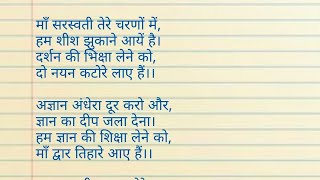 माँ सरस्वती तेरे चरणों में,
हम शीश झुकाने आयें है।
दर्शन की भिक्षा लेने को,
दो नयन कटोरे लाए हैं।।
अज्ञान अंधेरा दूर करो और,
ज्ञान का दीप जला देना।
हम ज्ञान की शिक्षा लेने को,
माँ द्वार तिहारे आए हैं।।